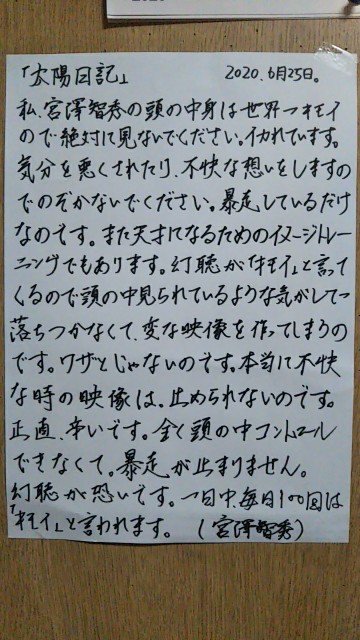 「太陽日記」 2020.6月25日。
私、宮澤智秀の頭の中身は世界一キモイ
ので絶対に見ないでください。イカれています。
気分を悪くされたり、不快な想いをしますの
でのぞかないでください。暴走しているだけ
なのです。また天才になるためのイメージトレー
ニングでもあります。幻聴が「キモイ」と言って
くるので頭の中見られているような気がして
落ちつかなくて、変な映像を作ってしまうの
です。ワザとじゃないのです。本当に不快
な時の映像は、止められないのです。
正直、辛いです。全く頭の中コントロール
できなくて。暴走が止まりません。
幻聴が恐いです。一日中、毎日100回は
「キモイ」と言われます。 (宮澤智秀)